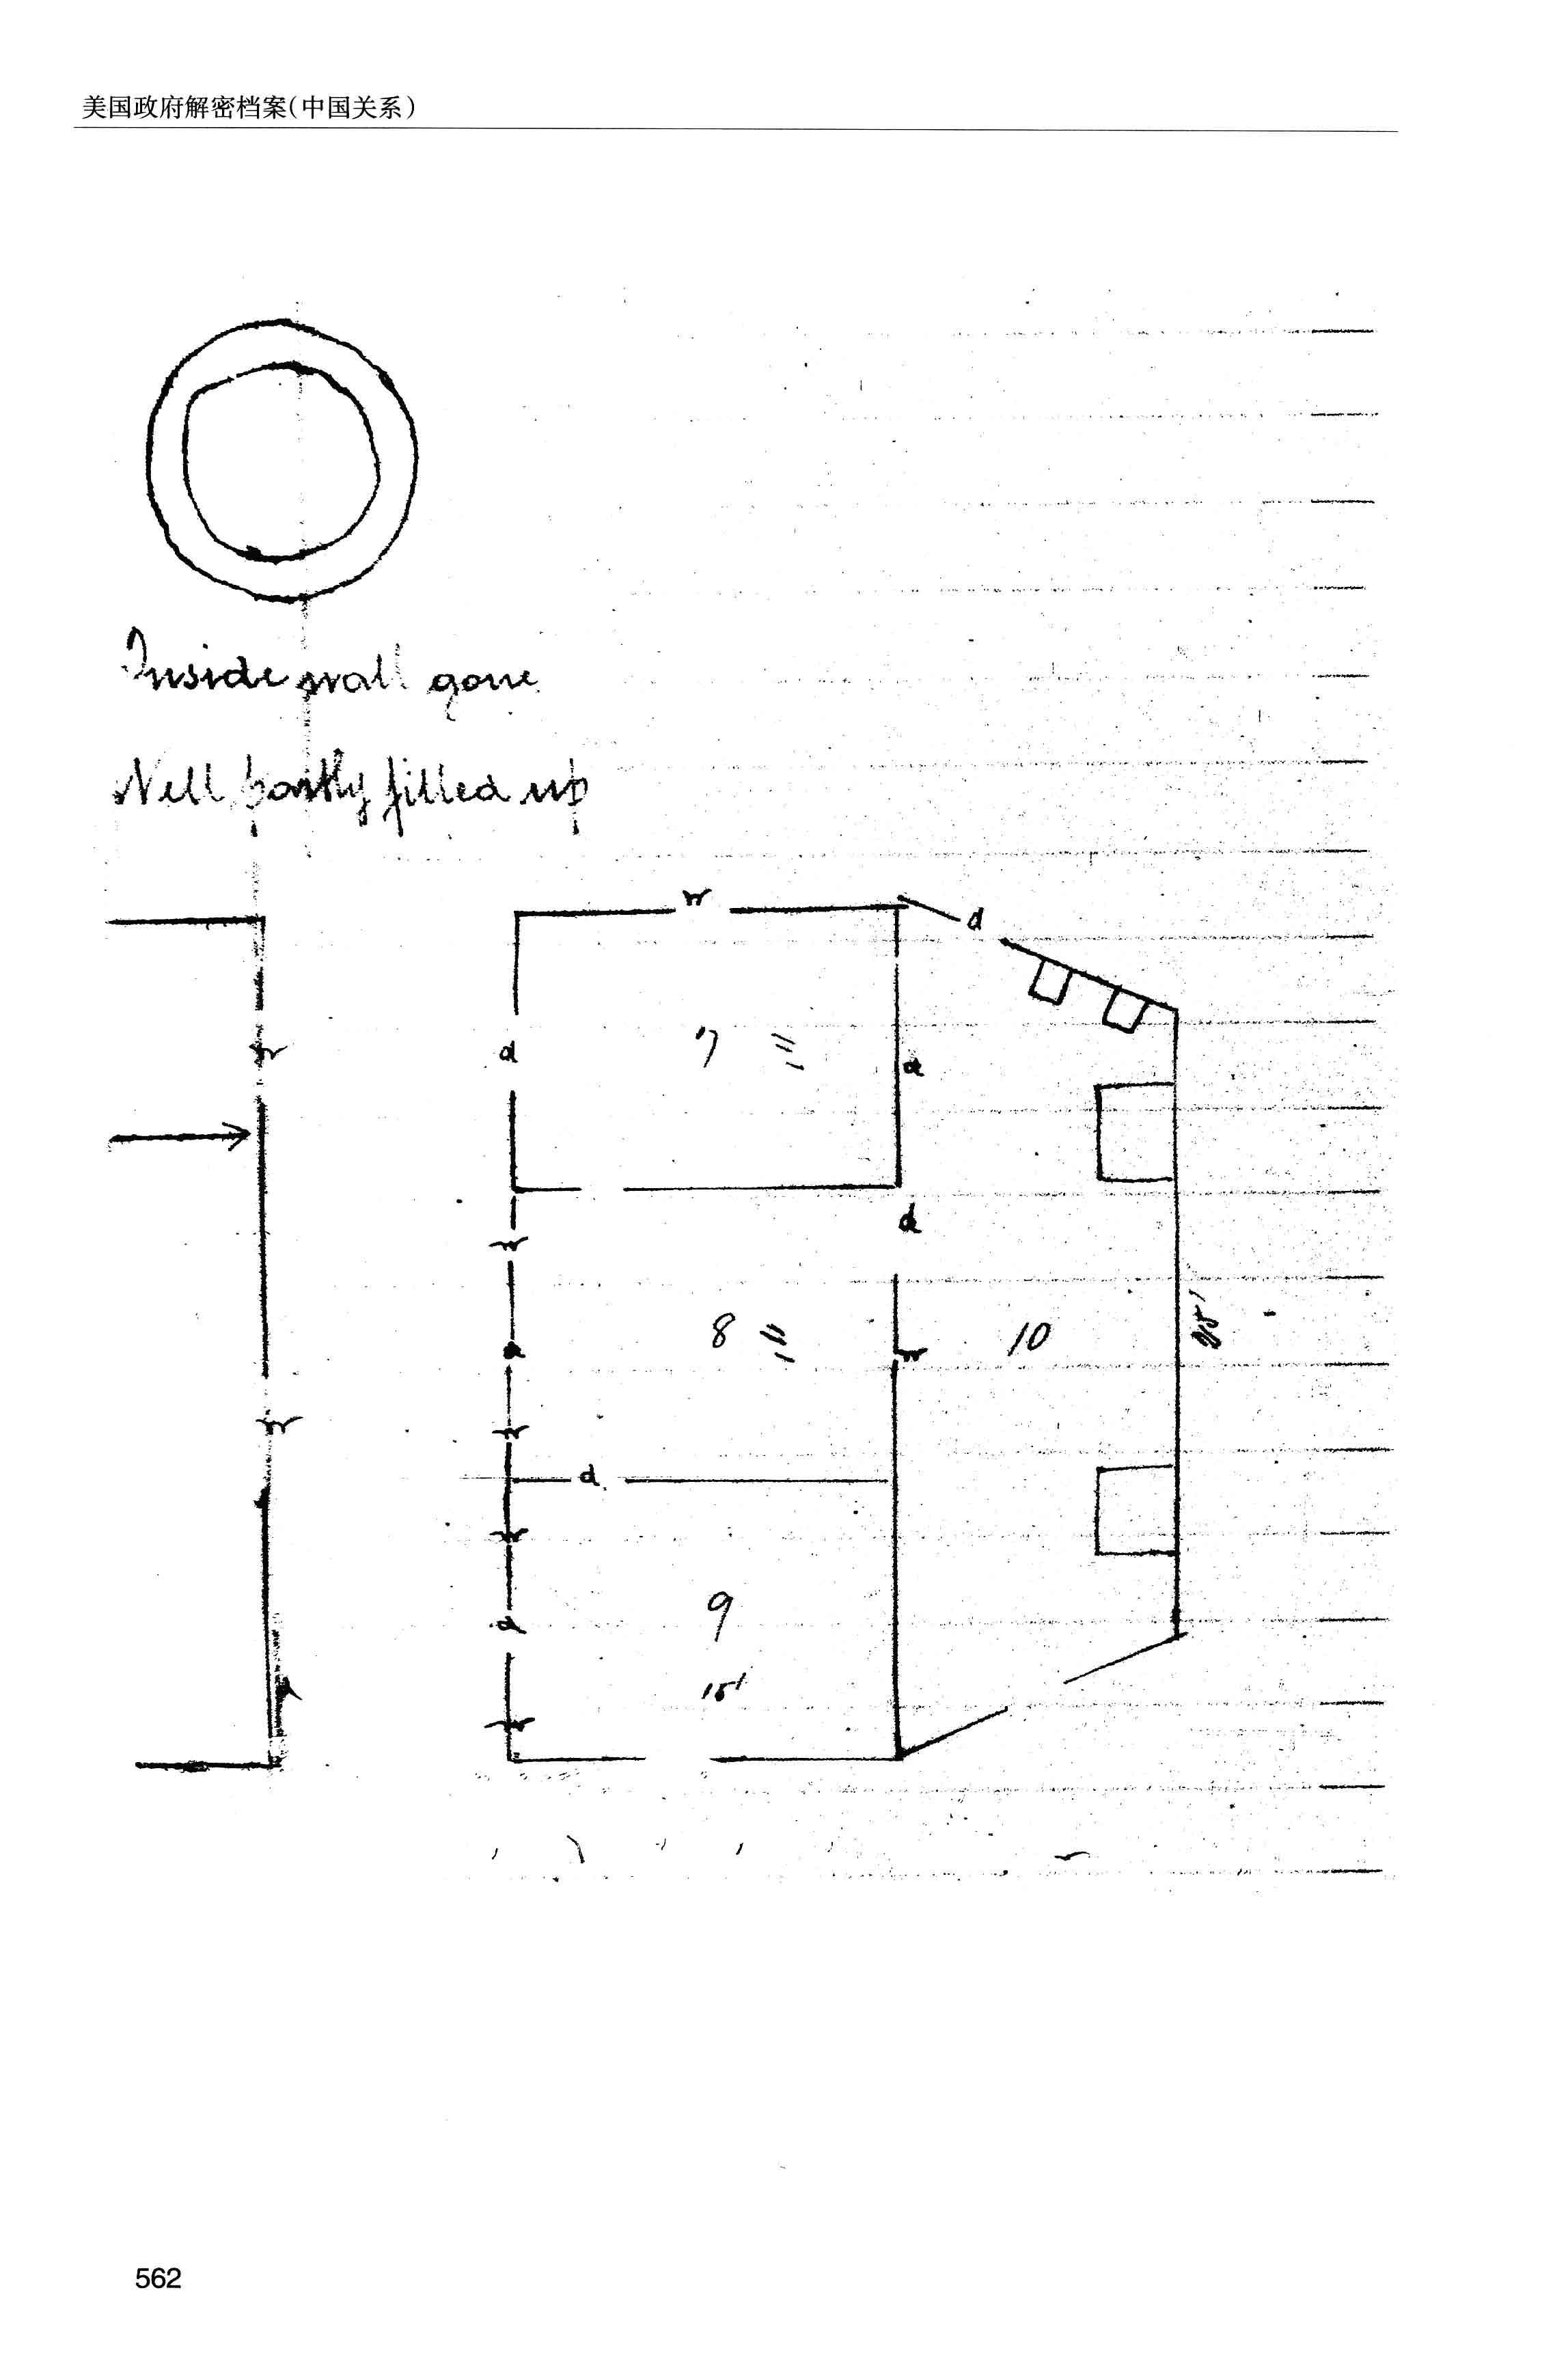 美国政府解密档案(中国关系)
Inside wall gone
Well partly filled up
w
d
w
7 =
d
d
w
d
w
8 =
10
w
d
w
w
d
w
9
d
15'
d
w
562